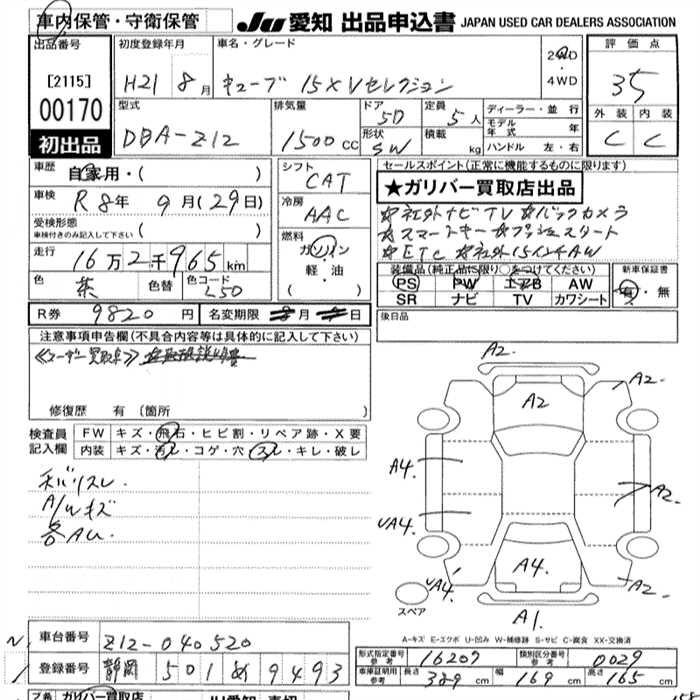 車内保管・守衛保管
JU 愛知 出品申込書 JAPAN USED CAR DEALERS ASSOCIATION
出品番号
[2115]
00170
初出品
初度登録年月
H21年 8月
車名・グレード
キューブ 15X Vセレクション
2WD
・
4WD
評価点
35
外装 内装
C C
型式
DBA-Z12
排気量
1500cc
ドア 5D
形状 SW
定員 5人
積載 kg
ディーラー・並行
モデル年式 年
ハンドル 左・右
車歴 自家用・( )
車検 R8年 9月(29日)
受検形態
車検付きのみ記入して下さい ( )
走行 16万2千965km
色 茶 色替 色コード L50
シフト
CAT
冷房
AAC
燃料
ガソリン
軽・油
セールスポイント(正常に機能するものに限ります)
★ガリバー買取店出品
☆社外ナビTV ☆バックカメラ
☆スマートキー ☆プッシュスタート
☆ETC ☆社外15インチAW
装備品(純正品に限り○をつけてください)
PS PW エアB AW
SR ナビ TV カワシート
新車保証書
有・無
R券 9820円 名変期限 月 日
後日品
注意事項申告欄(不具合内容等は具体的に記入して下さい)
≪ユーザー買取車≫
修復歴 有 〔箇所 〕
検査員
記入欄
FW キズ・飛石・ヒビ割・リペア跡・X要
内装 キズ・汚レ・コゲ・穴・スレ・キレ・破レ
A/Wキズ
A2.
A2
A2.
A4.
A2.
A4.
A4.
A4
A2.
A1.
スペア
A-キズ E-エクボ U-凹み W-補修跡 S-サビ C-腐食 XX-交換済
車台番号 Z12-040520
登録番号 静岡 501 ぬ 9493
形式指定番号 参考 16207
類別区分番号 参考 0029
車庫証明用 参考 長さ 389cm 幅 169cm 高さ 165cm
ガリバー買取店
JU愛知